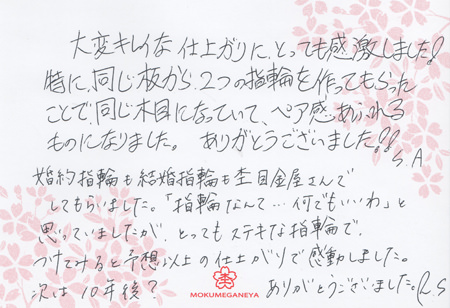 大変キレイな仕上がりに、とっても感激しました!
特に、同じ板から、2つの指輪を作ってもらった
ことで、同じ木目になっていて、ペア感あふれる
ものになりました。 ありがとうございました!!
S.A
婚約指輪も結婚指輪も杢目金屋さんで
してもらいました。「指輪なんて…何でもいいわ」と
思っていましたが、とってもステキな指輪で、
つけてみると予想以上の仕上がりで感動しました。
次は10年後? ありがとうございました。R.S
MOKUMEGANEYA